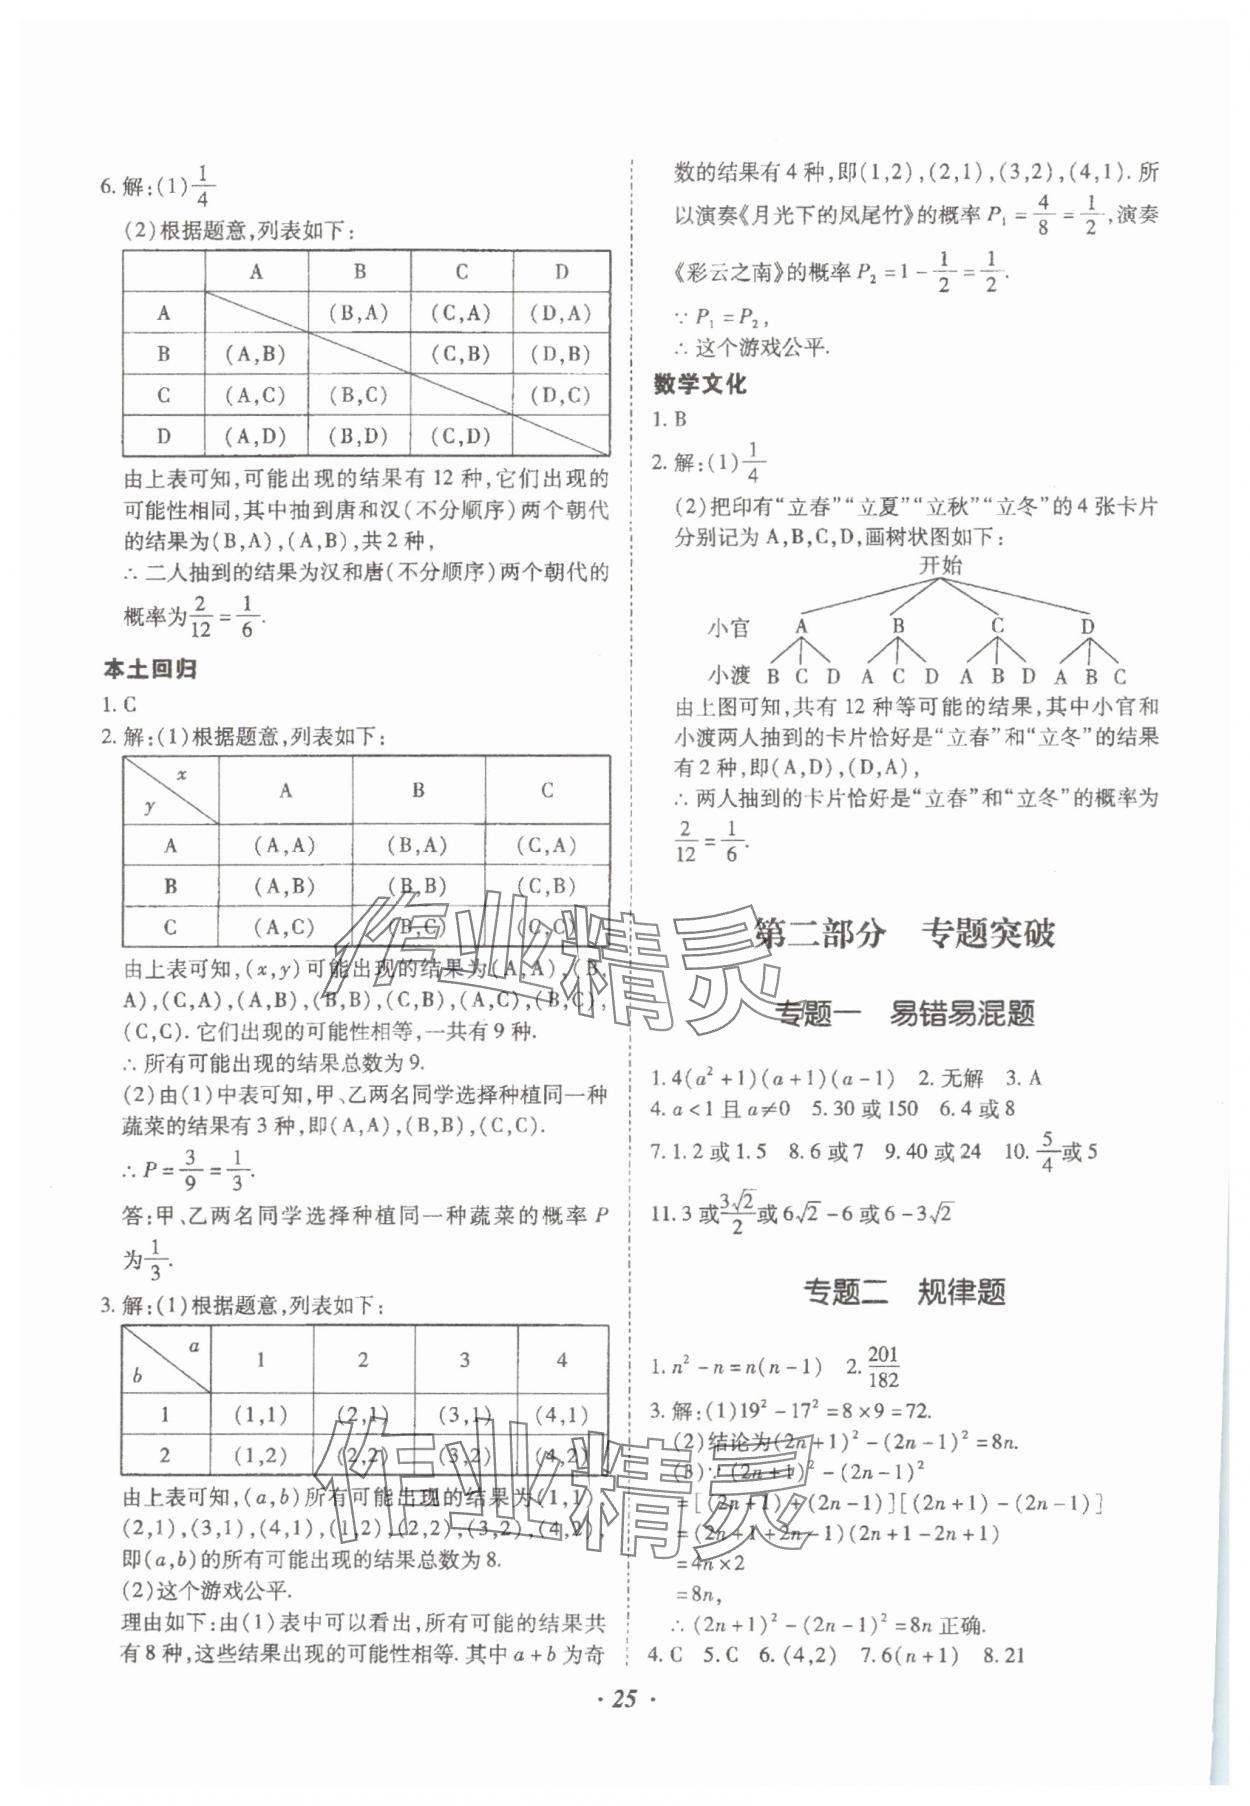 6. 解:(1)1/4
(2)根据题意,列表如下:
A B C D
A (B,A) (C,A) (D,A)
B (A,B) (C,B) (D,B)
C (A,C) (B,C) (D,C)
D (A,D) (B,D) (C,D)
由上表可知,可能出现的结果有 12 种,它们出现的
可能性相同,其中抽到唐和汉(不分顺序)两个朝代
的结果为(B,A),(A,B),共2种,
∴ 二人抽到的结果为汉和唐(不分顺序)两个朝代的
概率为2/12=1/6.
本土回归
1. C
2. 解:(1)根据题意,列表如下:
x y A B C
A (A,A) (B,A) (C,A)
B (A,B) (B,B) (C,B)
C (A,C) (B,C) (C,C)
由上表可知,(x,y)可能出现的结果为(A,A),(B,
A),(C,A),(A,B),(B,B),(C,B),(A,C),(B,C),
(C,C). 它们出现的可能性相等,一共有9种.
∴ 所有可能出现的结果总数为9.
(2)由(1)中表可知,甲、乙两名同学选择种植同一种
蔬菜的结果有3种,即(A,A),(B,B),(C,C).
∴ P=3/9=1/3.
答:甲、乙两名同学选择种植同一种蔬菜的概率 P
为1/3.
3. 解:(1)根据题意,列表如下:
a b 1 2 3 4
1 (1,1) (2,1) (3,1) (4,1)
2 (1,2) (2,2) (3,2) (4,2)
由上表可知,(a,b)所有可能出现的结果为(1,1),
(2,1),(3,1),(4,1),(1,2),(2,2),(3,2),(4,2),
即(a,b)的所有可能出现的结果总数为8.
(2)这个游戏公平.
理由如下:由(1)表中可以看出,所有可能的结果共
有8种,这些结果出现的可能性相等. 其中 a+b 为奇
数的结果有4种,即(1,2),(2,1),(3,2),(4,1). 所
以演奏《月光下的凤尾竹》的概率 P₁=4/8=1/2,演奏
《彩云之南》的概率 P₂=1-1/2=1/2.
∵ P₁=P₂,
∴ 这个游戏公平.
数学文化
1. B
2. 解:(1)1/4
(2)把印有“立春”“立夏”“立秋”“立冬”的4张卡片
分别记为 A,B,C,D,画树状图如下:
开始
小官 A B C D
小渡 B C D A C D A B D A B C
由上图可知,共有 12 种等可能的结果,其中小官和
小渡两人抽到的卡片恰好是“立春”和“立冬”的结果
有2种,即(A,D),(D,A),
∴ 两人抽到的卡片恰好是“立春”和“立冬”的概率为
2/12=1/6.
第二部分 专题突破
专题一 易错易混题
1. 4(a²+1)(a+1)(a-1) 2. 无解 3. A
4. a<1 且 a≠0 5. 30 或 150 6. 4 或 8
7. 1.2 或 1.5 8. 6 或 7 9. 40 或 24 10. 5/4或5
11. 3 或3√2/2或6√2-6或6-3√2
专题二 规律题
1. n²-n=n(n-1) 2. 201/182
3. 解:(1)19²-17²=8×9=72.
(2)结论为(2n+1)²-(2n-1)²=8n.
(B)∵(2n+1)²-(2n-1)²
=[(2n+1)+(2n-1)][(2n+1)-(2n-1)]
=(2n+1+2n-1)(2n+1-2n+1)
=4n×2
=8n,
∴ (2n+1)²-(2n-1)²=8n 正确.
4. C 5. C 6. (4,2) 7. 6(n+1) 8. 21
· 25 ·
作业精灵
作业精灵